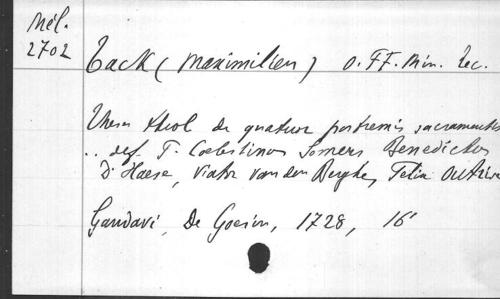 Mél.
2702
Tack (Maximilien) O. FF. Min. Rec.
Theses theol de quatuor postremis sacramentis
.. def. F. Coelestinus Somers Benedictus
D'Haese, Viator van den Berghe, Felix
Gandavi, De Goesin, 1728, 16°